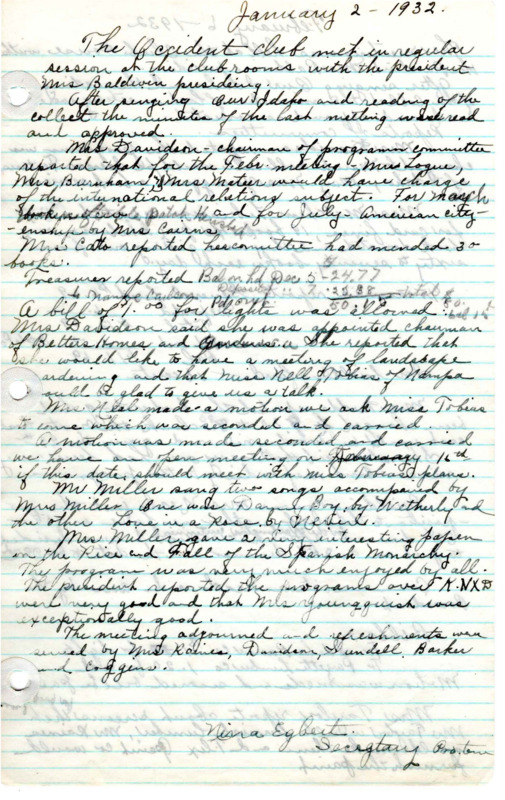 January 2 - 1932.
The Occident club met in regular
session at the club rooms with the president
Mrs Baldwin presiding.
After singing Our Idaho and reading of the
collect the minutes of the last meeting were read
and approved.
Mrs Davidson - chairman of programm committee
reported that for the Febr meeting - Mrs Logue,
Mrs Burnham, & Mrs Mateer would have charge
of the international relations subject. For March
and for July - American city-
enship by Mrs Cairns.
Mrs Cato reported her committee had mended 30
books.
Treasurer reported Bal on hd Dec 5 - 24.77
A bill of 7.00 for lights was allowed.
Mrs Davidson said she was appointed chairman
of Betters Homes, and she reported that
she would like to have a meeting of landscape
ardening and that Miss Nell Tobias of Nampa
would be glad to give us a talk.
Mrs. Neal made a motion we ask Miss Tobias
to come which was seconded and carried.
A motion was made seconded and carried
we have an open meeting on February
if this date should meet with Miss Tobias plans.
Mr Miller sang two songs accompanied by
Mrs Miller. One was Danny Boy, by Wetherly and
the other Love in a Rose by Nevins.
Mrs Miller gave a very interesting paper
on the Rise and Fall of the Spanish Monarchy.
The program was very much enjoyed by all.
The president reported the programs over KNXD
were very good and that Mrs Youngquist was
exceptionally good.
The meeting adjourned and refreshments were
served by Mrs Raines, Davidson, Sundell, Barker
and Coggins.
Nina Egbert
Secretary Protem